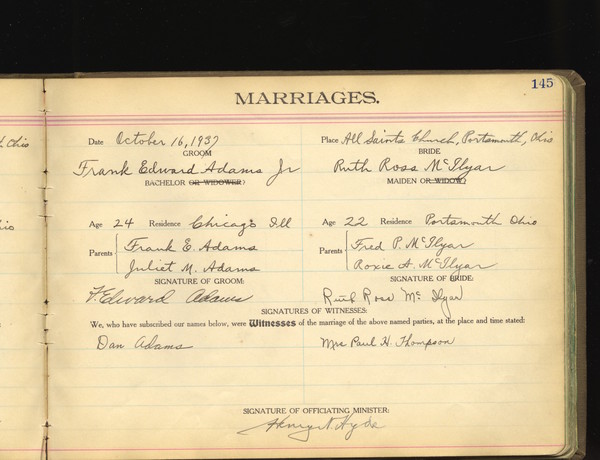 145
MARRIAGES.
Date October 16, 1937 Place All Saints Church, Portsmouth, Ohio
GROOM BRIDE
Frank Edward Adams Jr Ruth Ross McIlyar
BACHELOR OR WIDOWER) MAIDEN OR WIDOW)
Age 24 Residence Chicago Ill Age 22 Residence Portsmouth Ohio
Parents Frank E. Adams Parents Fred P. McIlyar
Juliet M. Adams Roxie A. McIlyar
SIGNATURE OF GROOM: SIGNATURE OF BRIDE:
F. Edward Adams Ruth Ross McIlyar
SIGNATURES OF WITNESSES:
We, who have subscribed our names below, were Witnesses of the marriage of the above named parties, at the place and time stated:
Dan Adams Mrs Paul H. Thompson
SIGNATURE OF OFFICIATING MINISTER:
Ohio